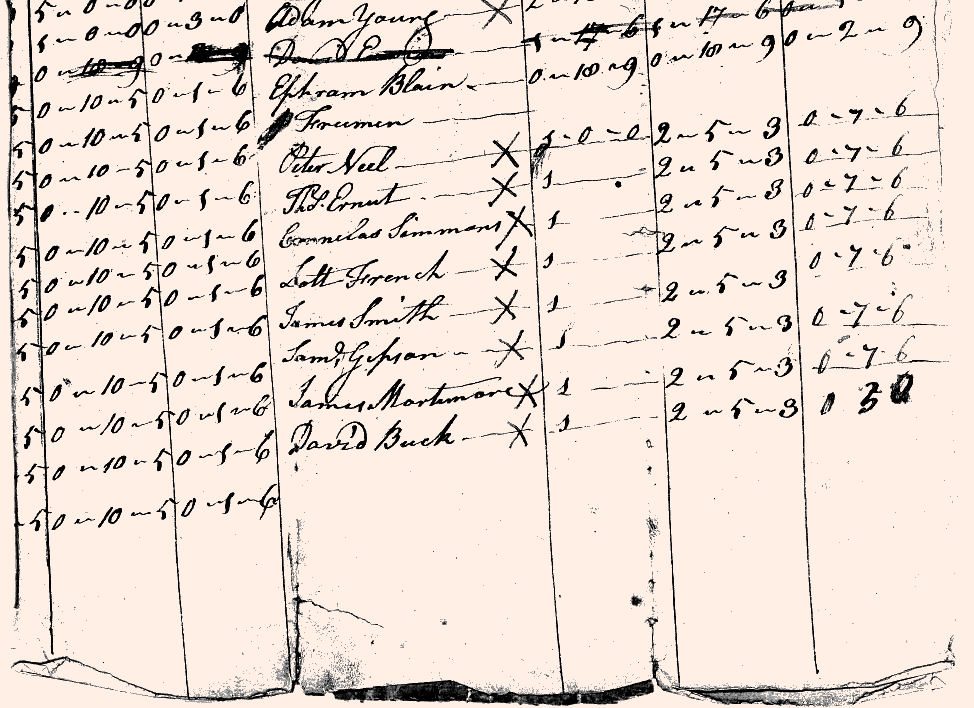 5 ~ 0 ~ 0 0 ~ 3 ~ 0 Adam Young X
0 ~ 18 ~ 9 0 David 5 ~ 17 ~ 6 5 ~ 17 ~ 6 0
5 0 ~ 10 ~ 5 0 ~ 5 ~ 6 Ephram Blain 0 ~ 18 ~ 9 0 ~ 18 ~ 9 0 ~ 2 ~ 9
5 0 ~ 10 ~ 5 0 ~ 5 ~ 6 Freemen
5 0 ~ 10 ~ 5 0 ~ 5 ~ 6 Peter Neel X 5 ~ 0 ~ 0 2 ~ 5 ~ 3 0 ~ 7 ~ 6
5 0 ~ 10 ~ 5 0 ~ 5 ~ 6 Thos. Ernut X 5 2 ~ 5 ~ 3 0 ~ 7 ~ 6
5 0 ~ 10 ~ 5 0 ~ 5 ~ 6 Cornelas Simmons X 5 2 ~ 5 ~ 3 0 ~ 7 ~ 6
5 0 ~ 10 ~ 5 0 ~ 5 ~ 6 Lott French X 5 2 ~ 5 ~ 3 0 ~ 7 ~ 6
5 0 ~ 10 ~ 5 0 ~ 5 ~ 6 James Smith X 5 2 ~ 5 ~ 3 0 ~ 7 ~ 6
5 0 ~ 10 ~ 5 0 ~ 5 ~ 6 Samd. Gipson X 5 2 ~ 5 ~ 3 0 ~ 7 ~ 6
5 0 ~ 10 ~ 5 0 ~ 5 ~ 6 James Mortimore X 5 2 ~ 5 ~ 3 0 ~ 7 ~ 6
5 0 ~ 10 ~ 5 0 ~ 5 ~ 6 David Buck X 5 2 ~ 5 ~ 3 0 3 0
5 0 ~ 10 ~ 5 0 ~ 5 ~ 6
5 0 ~ 10 ~ 5 0 ~ 5 ~ 6